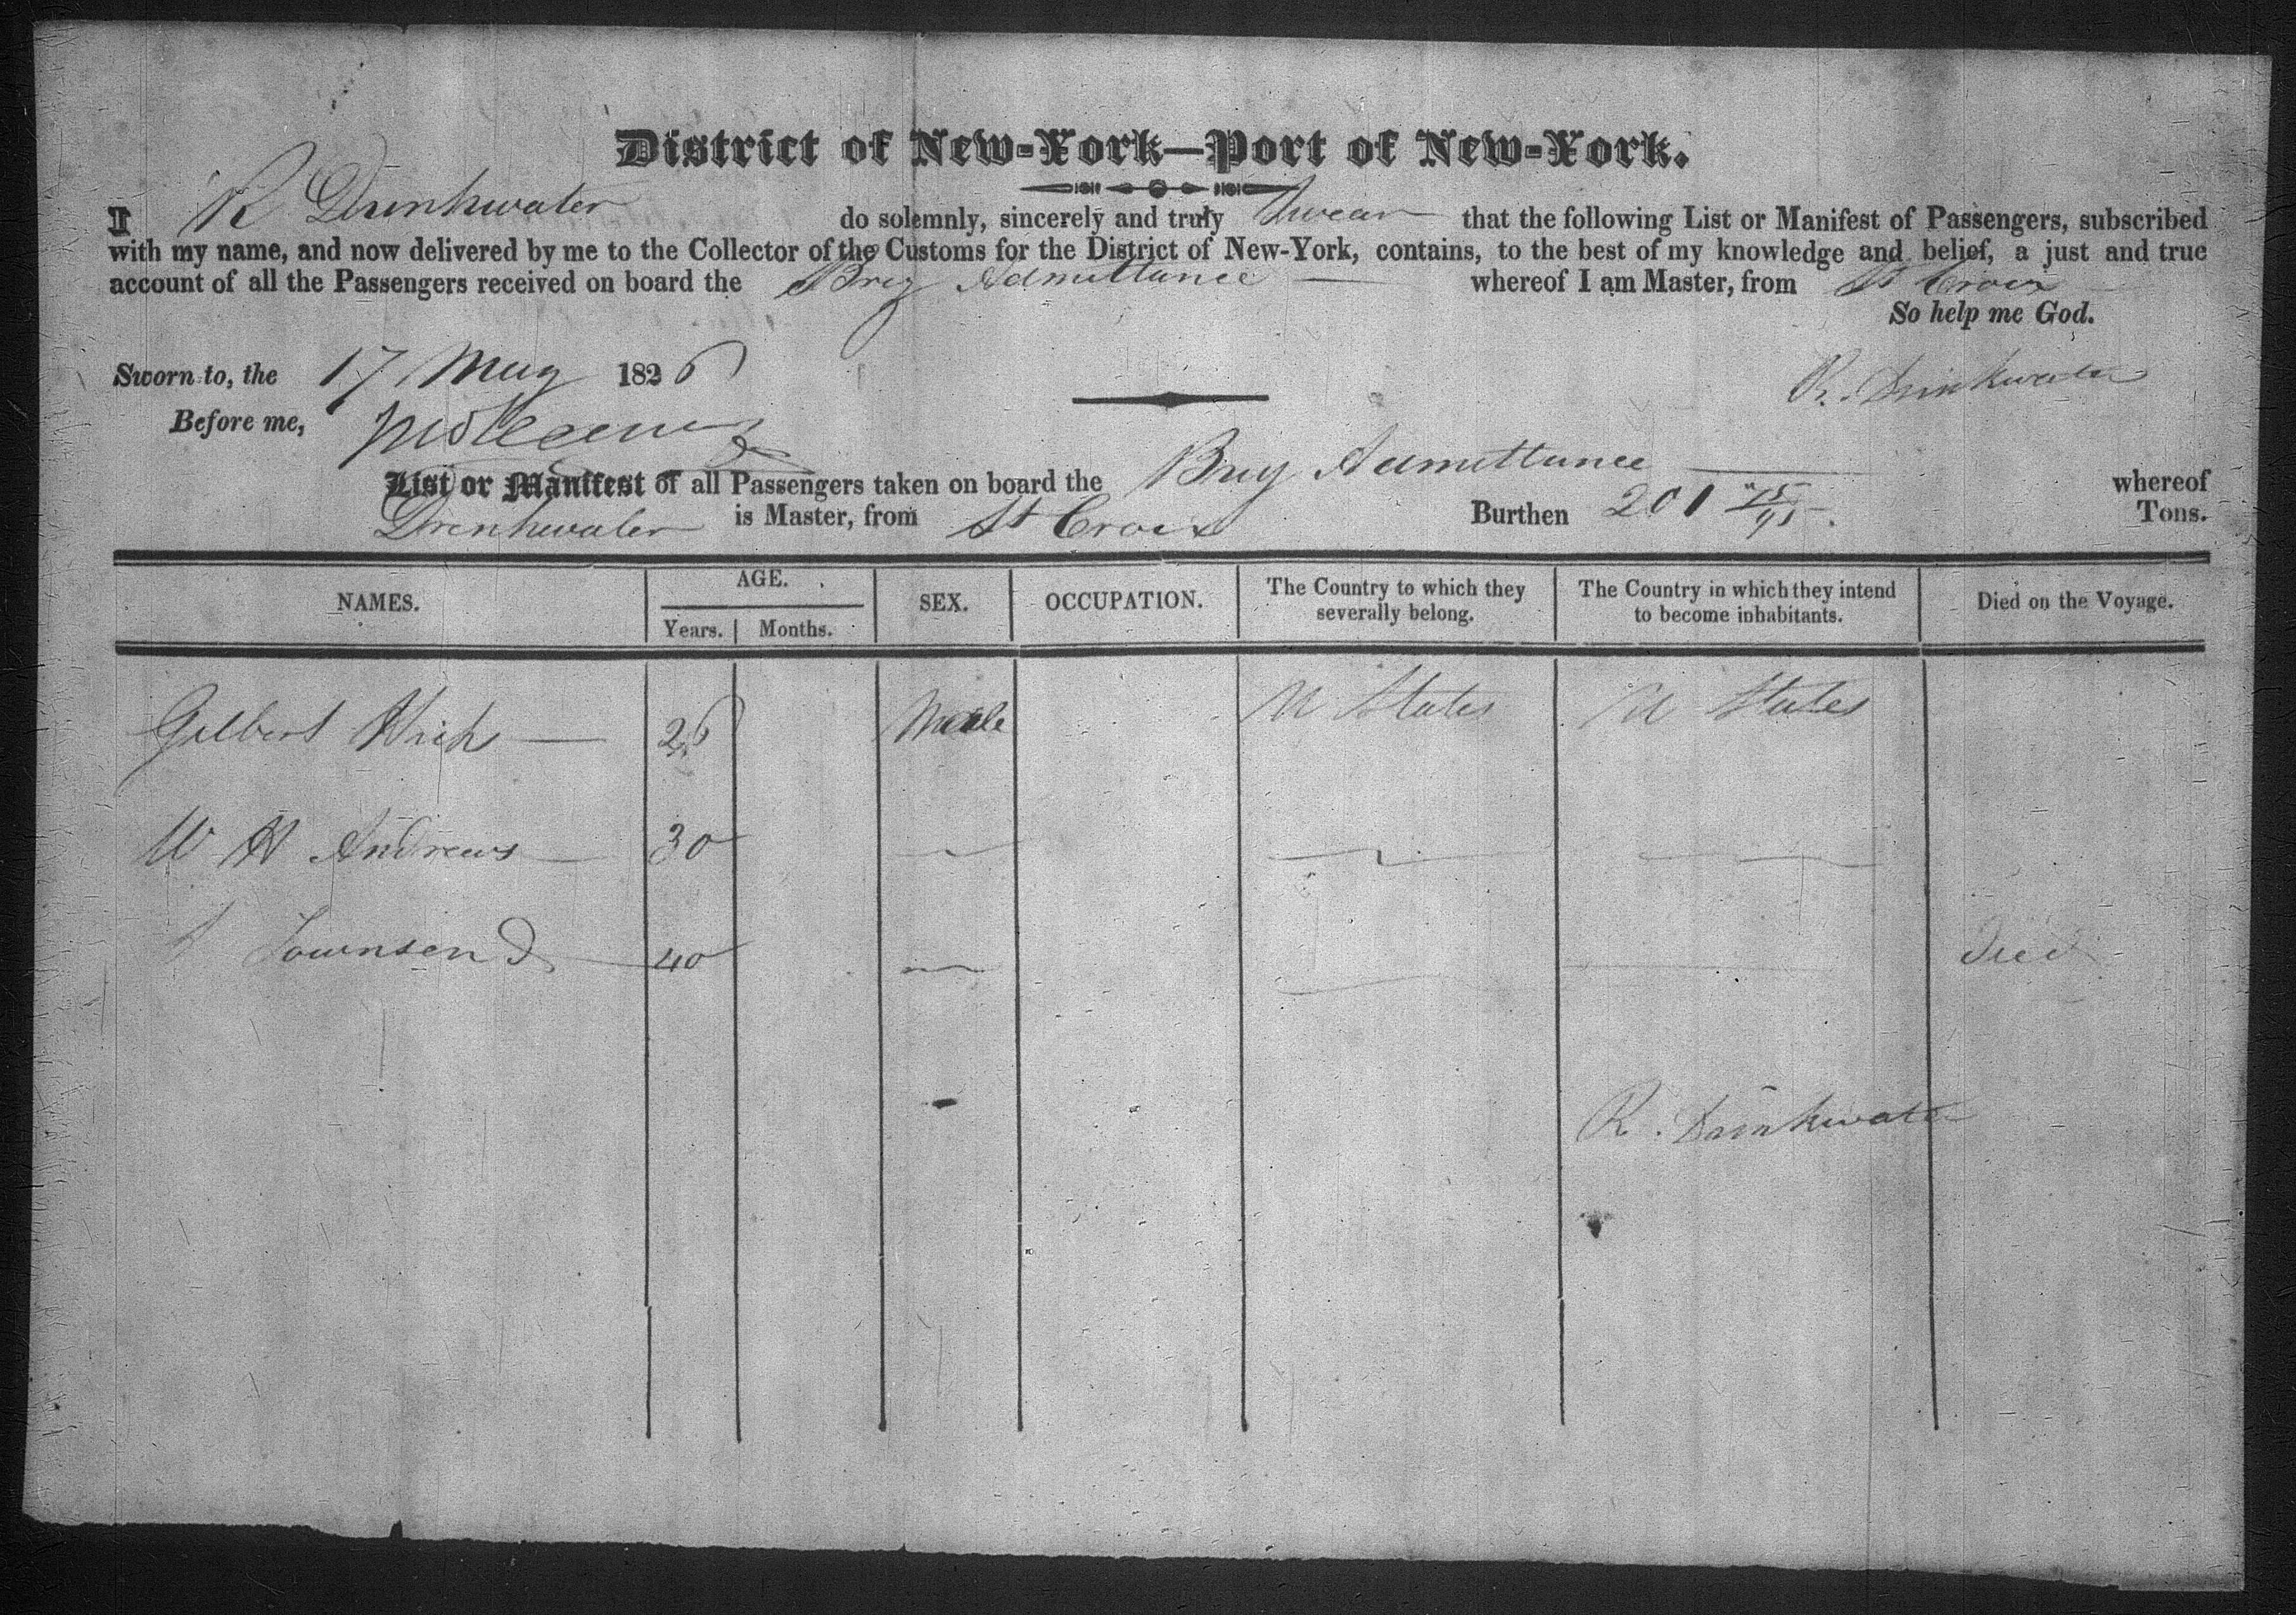 District of New-York—Port of New-York.
I R Drinkwater do solemnly, sincerely and truly Swear that the following List or Manifest of Passengers, subscribed
with my name, and now delivered by me to the Collector of the Customs for the District of New-York, contains, to the best of my knowledge and belief, a just and true
account of all the Passengers received on board the Brig Admittance whereof I am Master, from St Croix
So help me God.
Sworn to, the 17 May 1826
R. Drinkwater
Before me,
List or Manifest of all Passengers taken on board the Brig Admittance whereof
Drinkwater is Master, from St Croix Burthen 201 Tons.
NAMES. AGE. Years. Months. SEX. OCCUPATION. The Country to which they severally belong. The Country in which they intend to become inhabitants. Died on the Voyage.
Gilbert 26 Male U States U States
W H Andrews 30
Townsend 40 died
R. Drinkwater